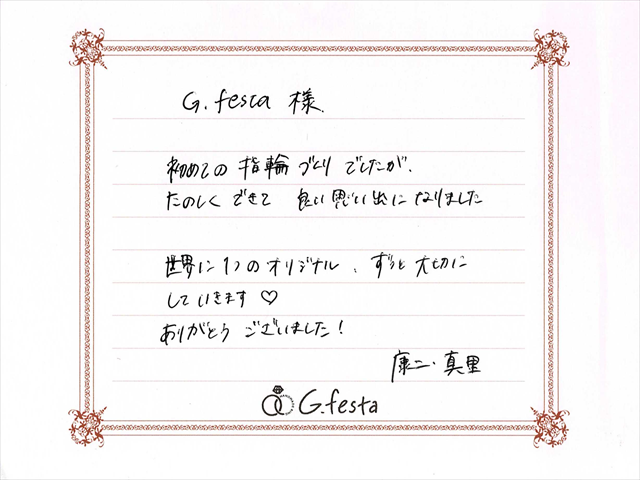 G.festa 様
初めての 指輪 づくり でしたが、
たのしく できて 良い思い出に なりました
世界に1つの オリジナル、ずっと 大切に
していきます♡
ありがとう ございました！
康二・真里
G.festa